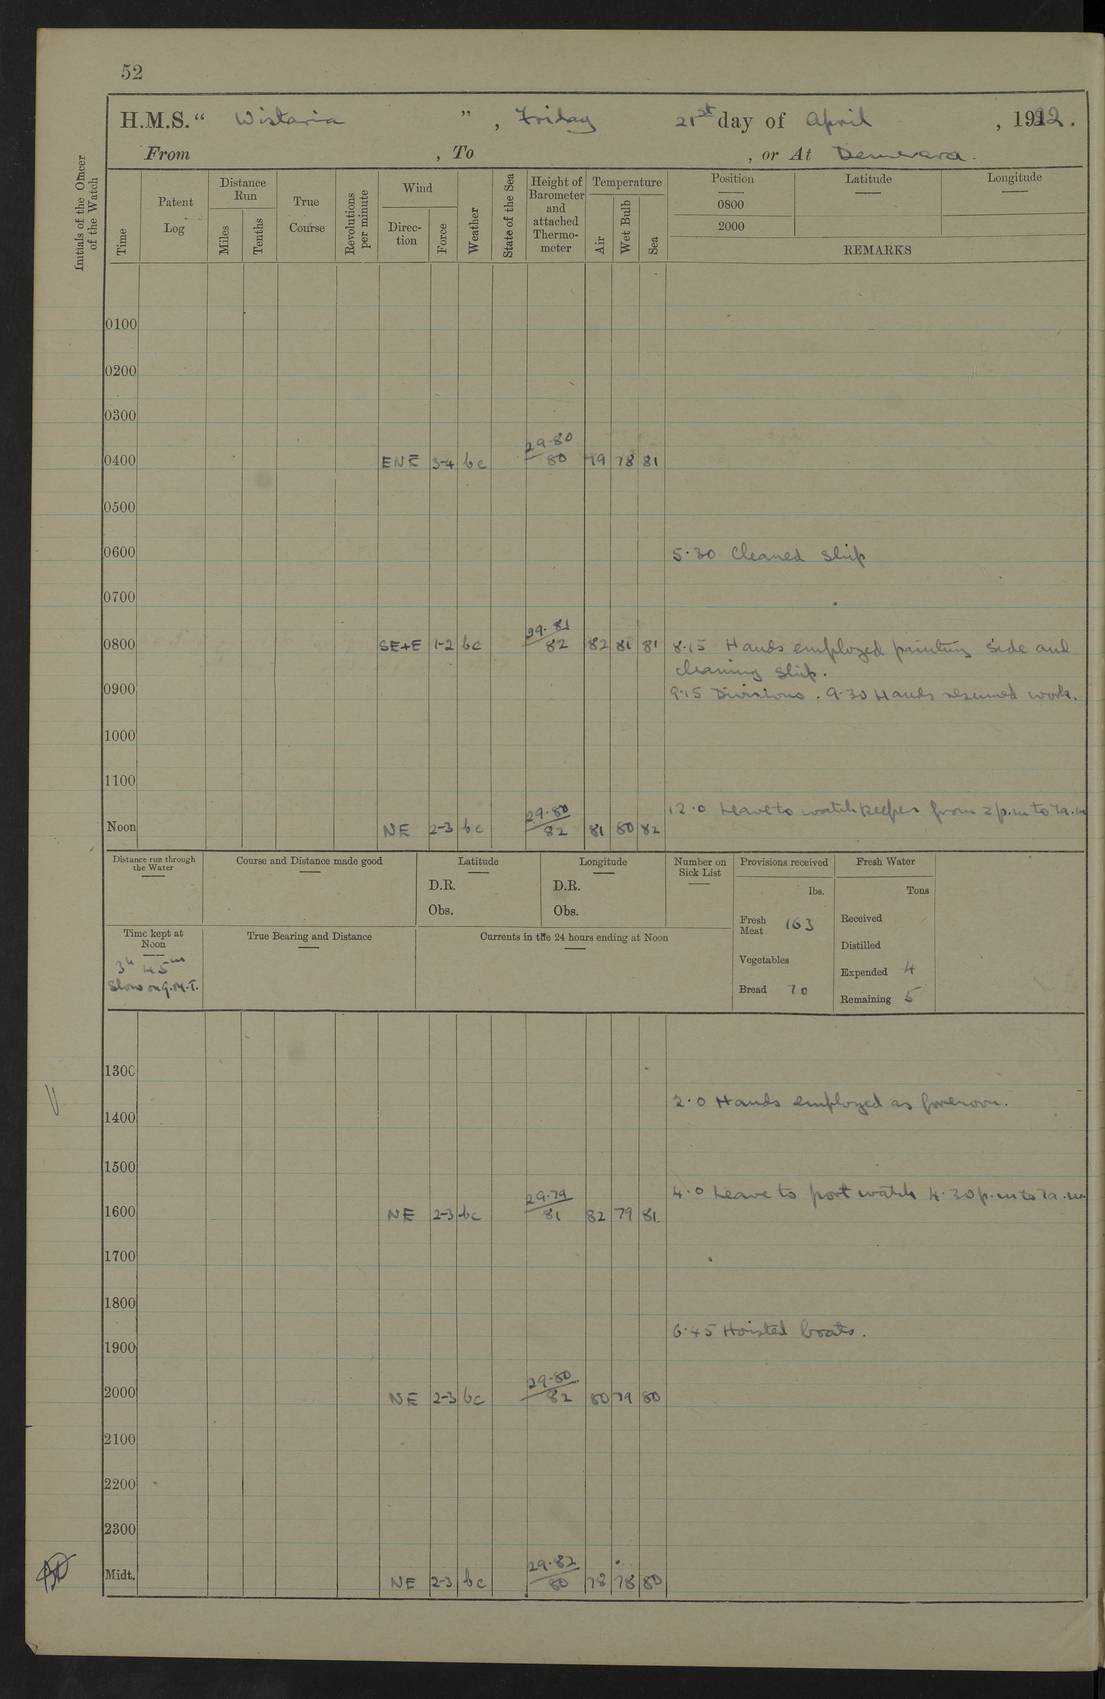 52
H.M.S. “ Wistaria ” , Friday 21st day of April , 1922.
From , To , or At Demerara.
Initials of the Officer of the Watch
Time
Patent Log
Distance Run
Miles
Tenths
True Course
Revolutions per minute
Wind
Direction
Force
Weather
State of the Sea
Height of Barometer and attached Thermometer
Temperature
Air
Wet Bulb
Sea
Position Latitude Longitude
0800
2000
REMARKS
0100
0200
0300
0400 ENE 3-4 bc 29.80/80 79 78 81
0500
0600 5.30 Cleaned ship
0700
0800 SE+E 1-2 bc 29.81/82 82 81 81 8.15 Hands employed painting side and
cleaning ship.
0900 9.15 Divisions. 9.30 Hands resumed work.
1000
1100
12.0 Leave to watchkeepers from 2 p.m to 7a.m
Noon NE 2-3 bc 29.80/82 81 80 82
Distance run through the Water
Course and Distance made good
Latitude
D.R.
Obs.
Longitude
D.R.
Obs.
Number on Sick List
Provisions received
lbs.
Fresh Meat 163
Vegetables
Bread 70
Fresh Water
Tons
Received
Distilled
Expended 4
Remaining 5
Time kept at Noon
3h 45m
Slow on G.M.T.
True Bearing and Distance
Currents in the 24 hours ending at Noon
1300
2.0 Hands employed as forenoon.
1400
1500
4.0 Leave to port watch 4.30p.m to 7a.m.
1600 NE 2-3 bc 29.79/81 82 79 81
1700
1800
6.45 Hoisted boats.
1900
2000 NE 2-3 bc 29.80/82 80 79 80
2100
2200
2300
Midt. NE 2-3 bc 29.82/80 78 78 80